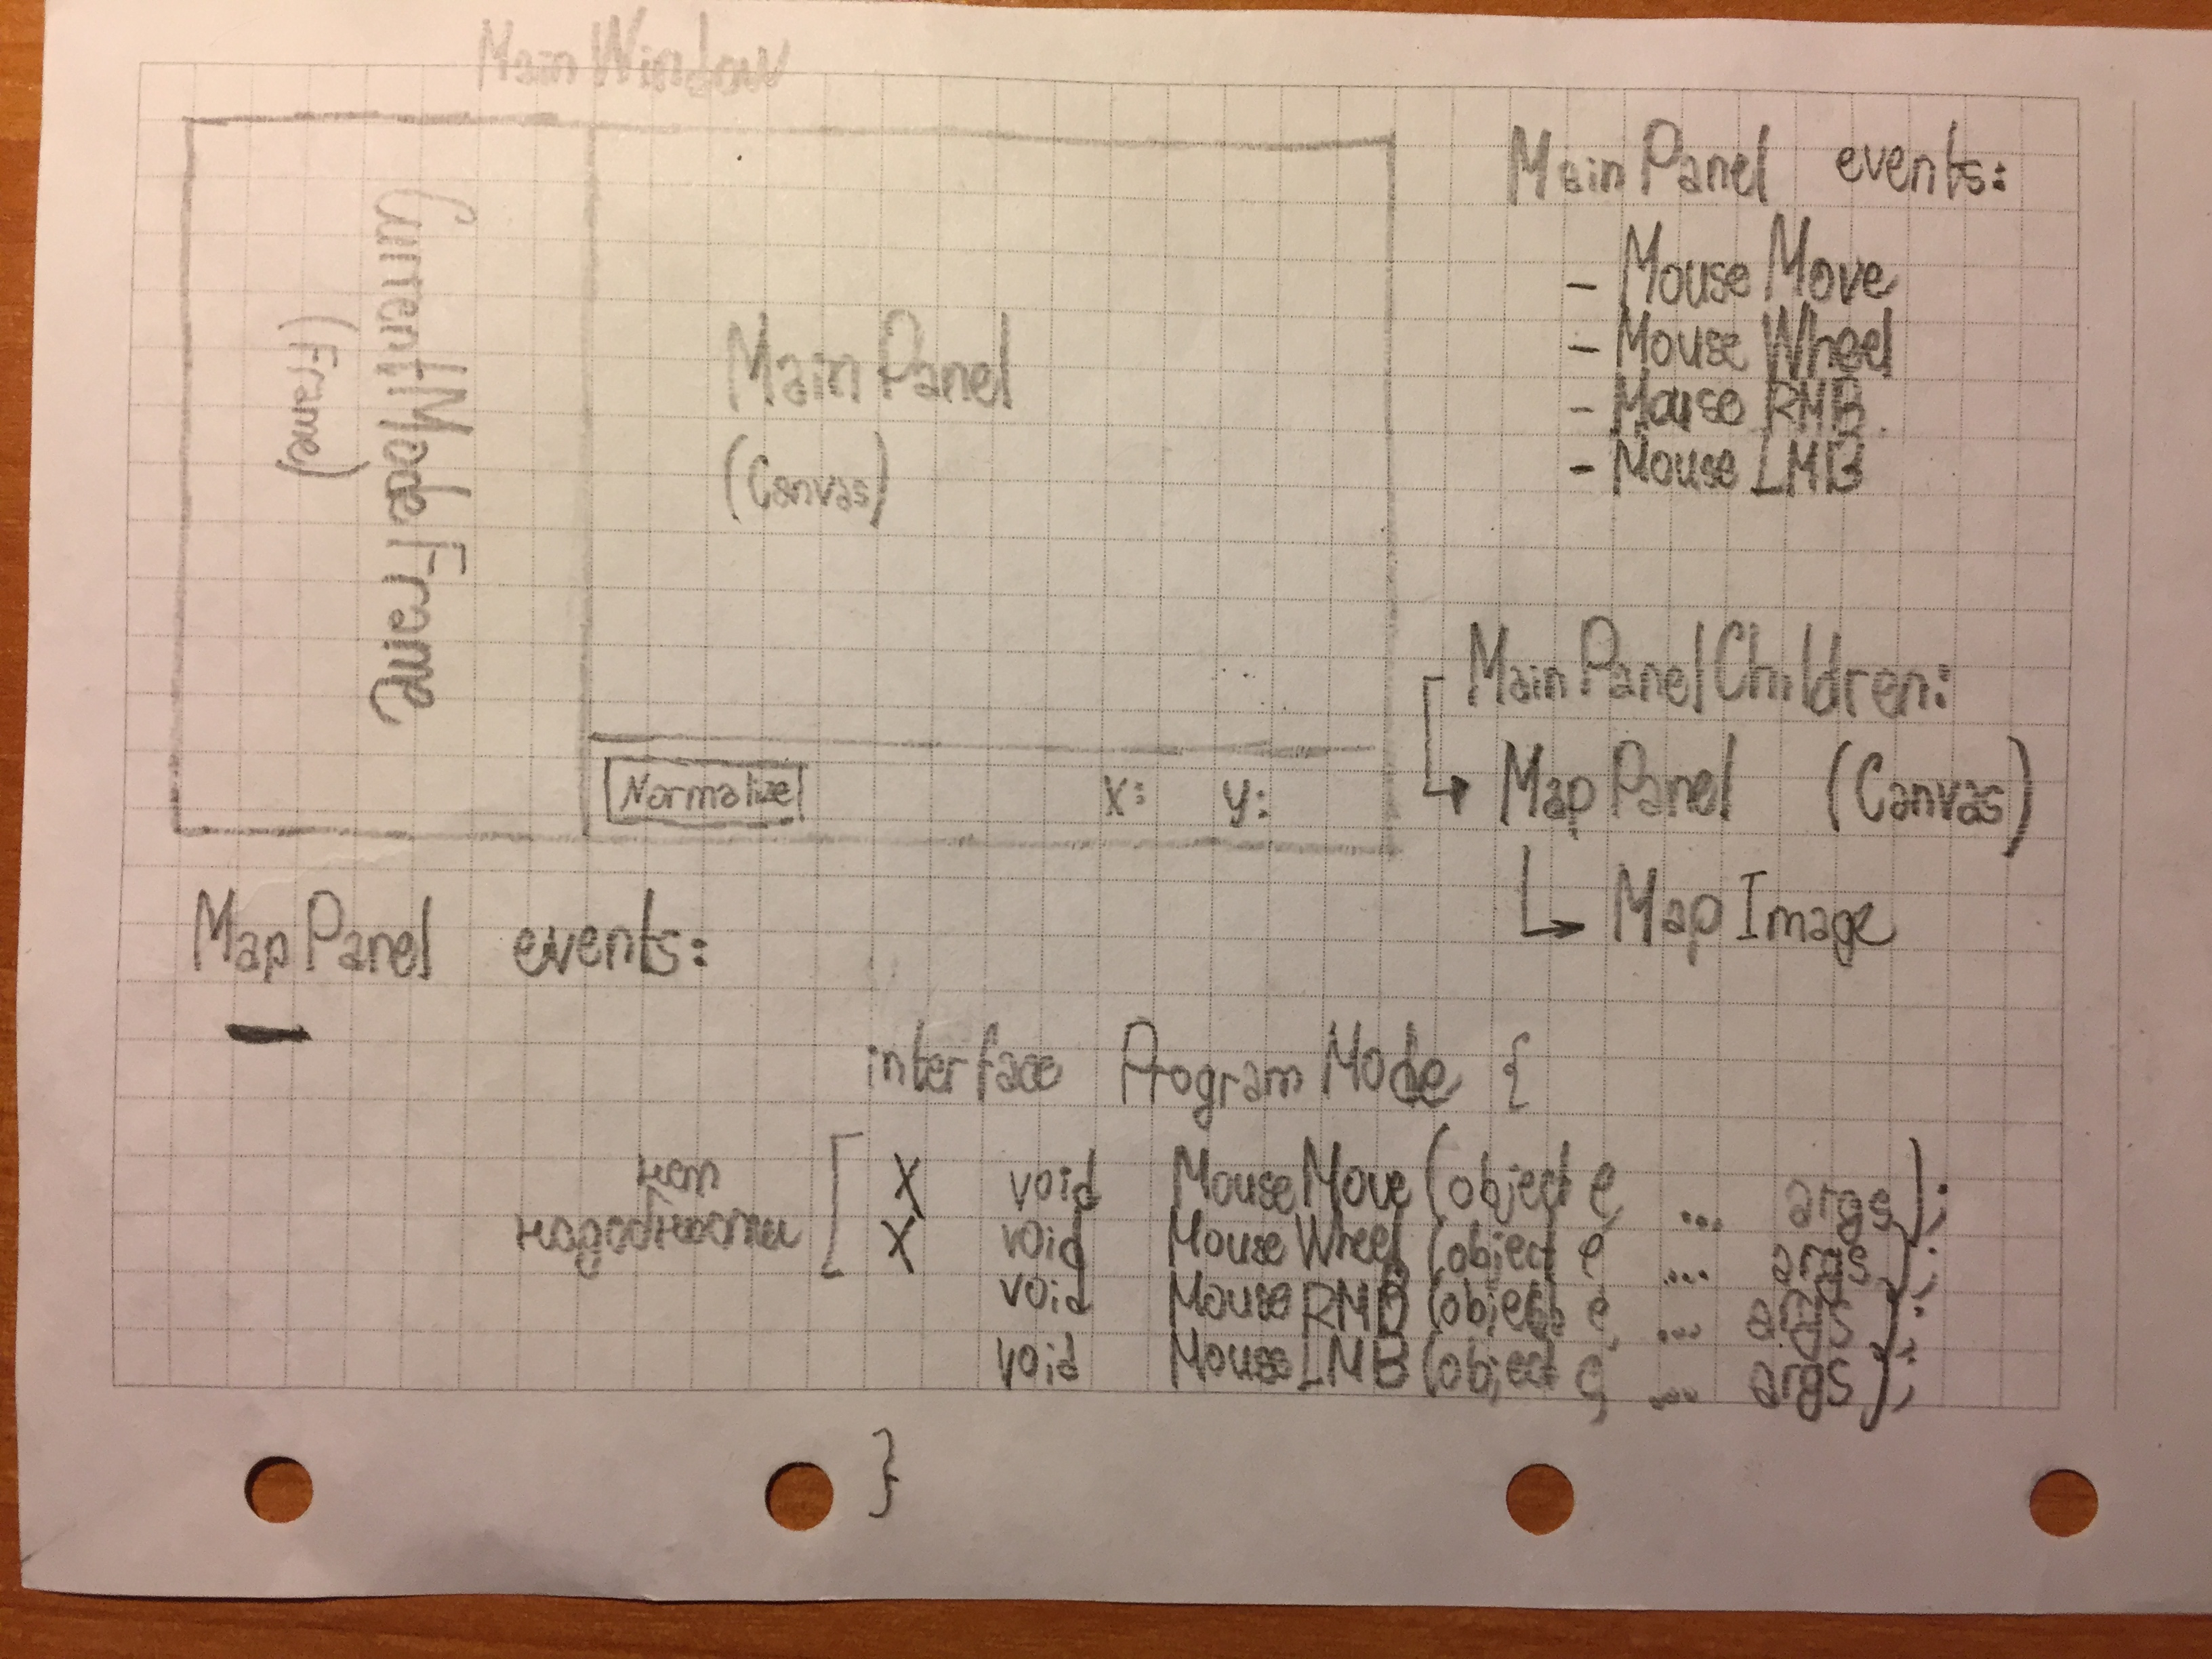 MainWindow
CurrentModeFrame
(Frame)
MainPanel
(Canvas)
Normalize
x: y:
MainPanel events:
- MouseMove
- MouseWheel
- MouseRMB
- MouseLMB
MainPanelChildren:
MapPanel (Canvas)
MapImage
MapPanel events:
—
interface ProgramMode {
нет
надобности
X void MouseMove(object e, ... args);
X void MouseWheel(object e, ... args);
void MouseRMB(object e, ... args);
void MouseLMB(object e, ... args);
}